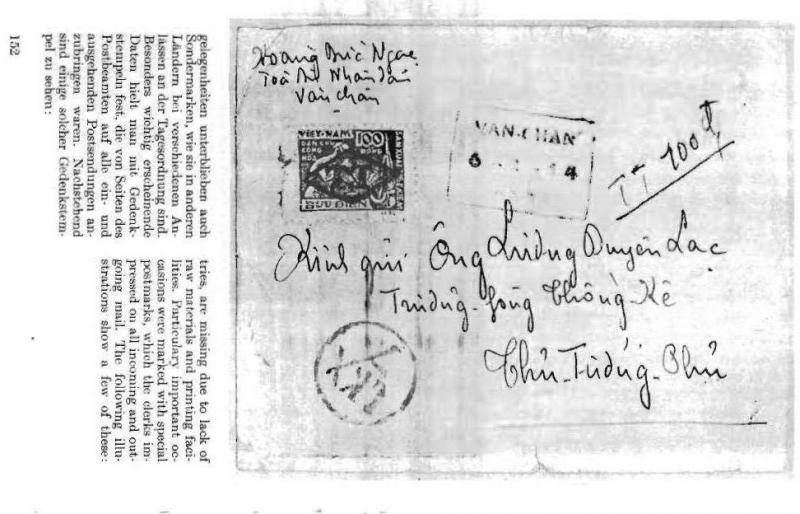 gelegenheiten unterblieben auch
Sondermarken, wie sie in anderen
Ländern bei verschiedenen An-
lässen an der Tagesordnung sind.
Besonders wichtig erscheinende
Daten hielt man mit Gedenk-
stempeln fest, die von Seiten des
Postbeamten auf alle ein- und
ausgehenden Postsendungen an-
zubringen waren. Nachstehend
sind einige solcher Gedenkstem-
pel zu sehen:
tries, are missing due to lack of
raw materials and printing faci-
lities. Particulary important oc-
casions were marked with special
postmarks, which the clerks im-
pressed on all incoming and out-
going mail. The following illu-
strations show a few of these:
152
Hoàng Đức Ngọc
Toà Án Nhân dân
Văn Chấn
VIET-NAM
100
DAN CHU
CONG
HOA
BUU DIEN
VAN-CHAN
TT 700đ
Kính gửi Ông Lương Duyên Lạc
Trưởng-phòng Thống-Kê
Thủ-Tướng-Phủ